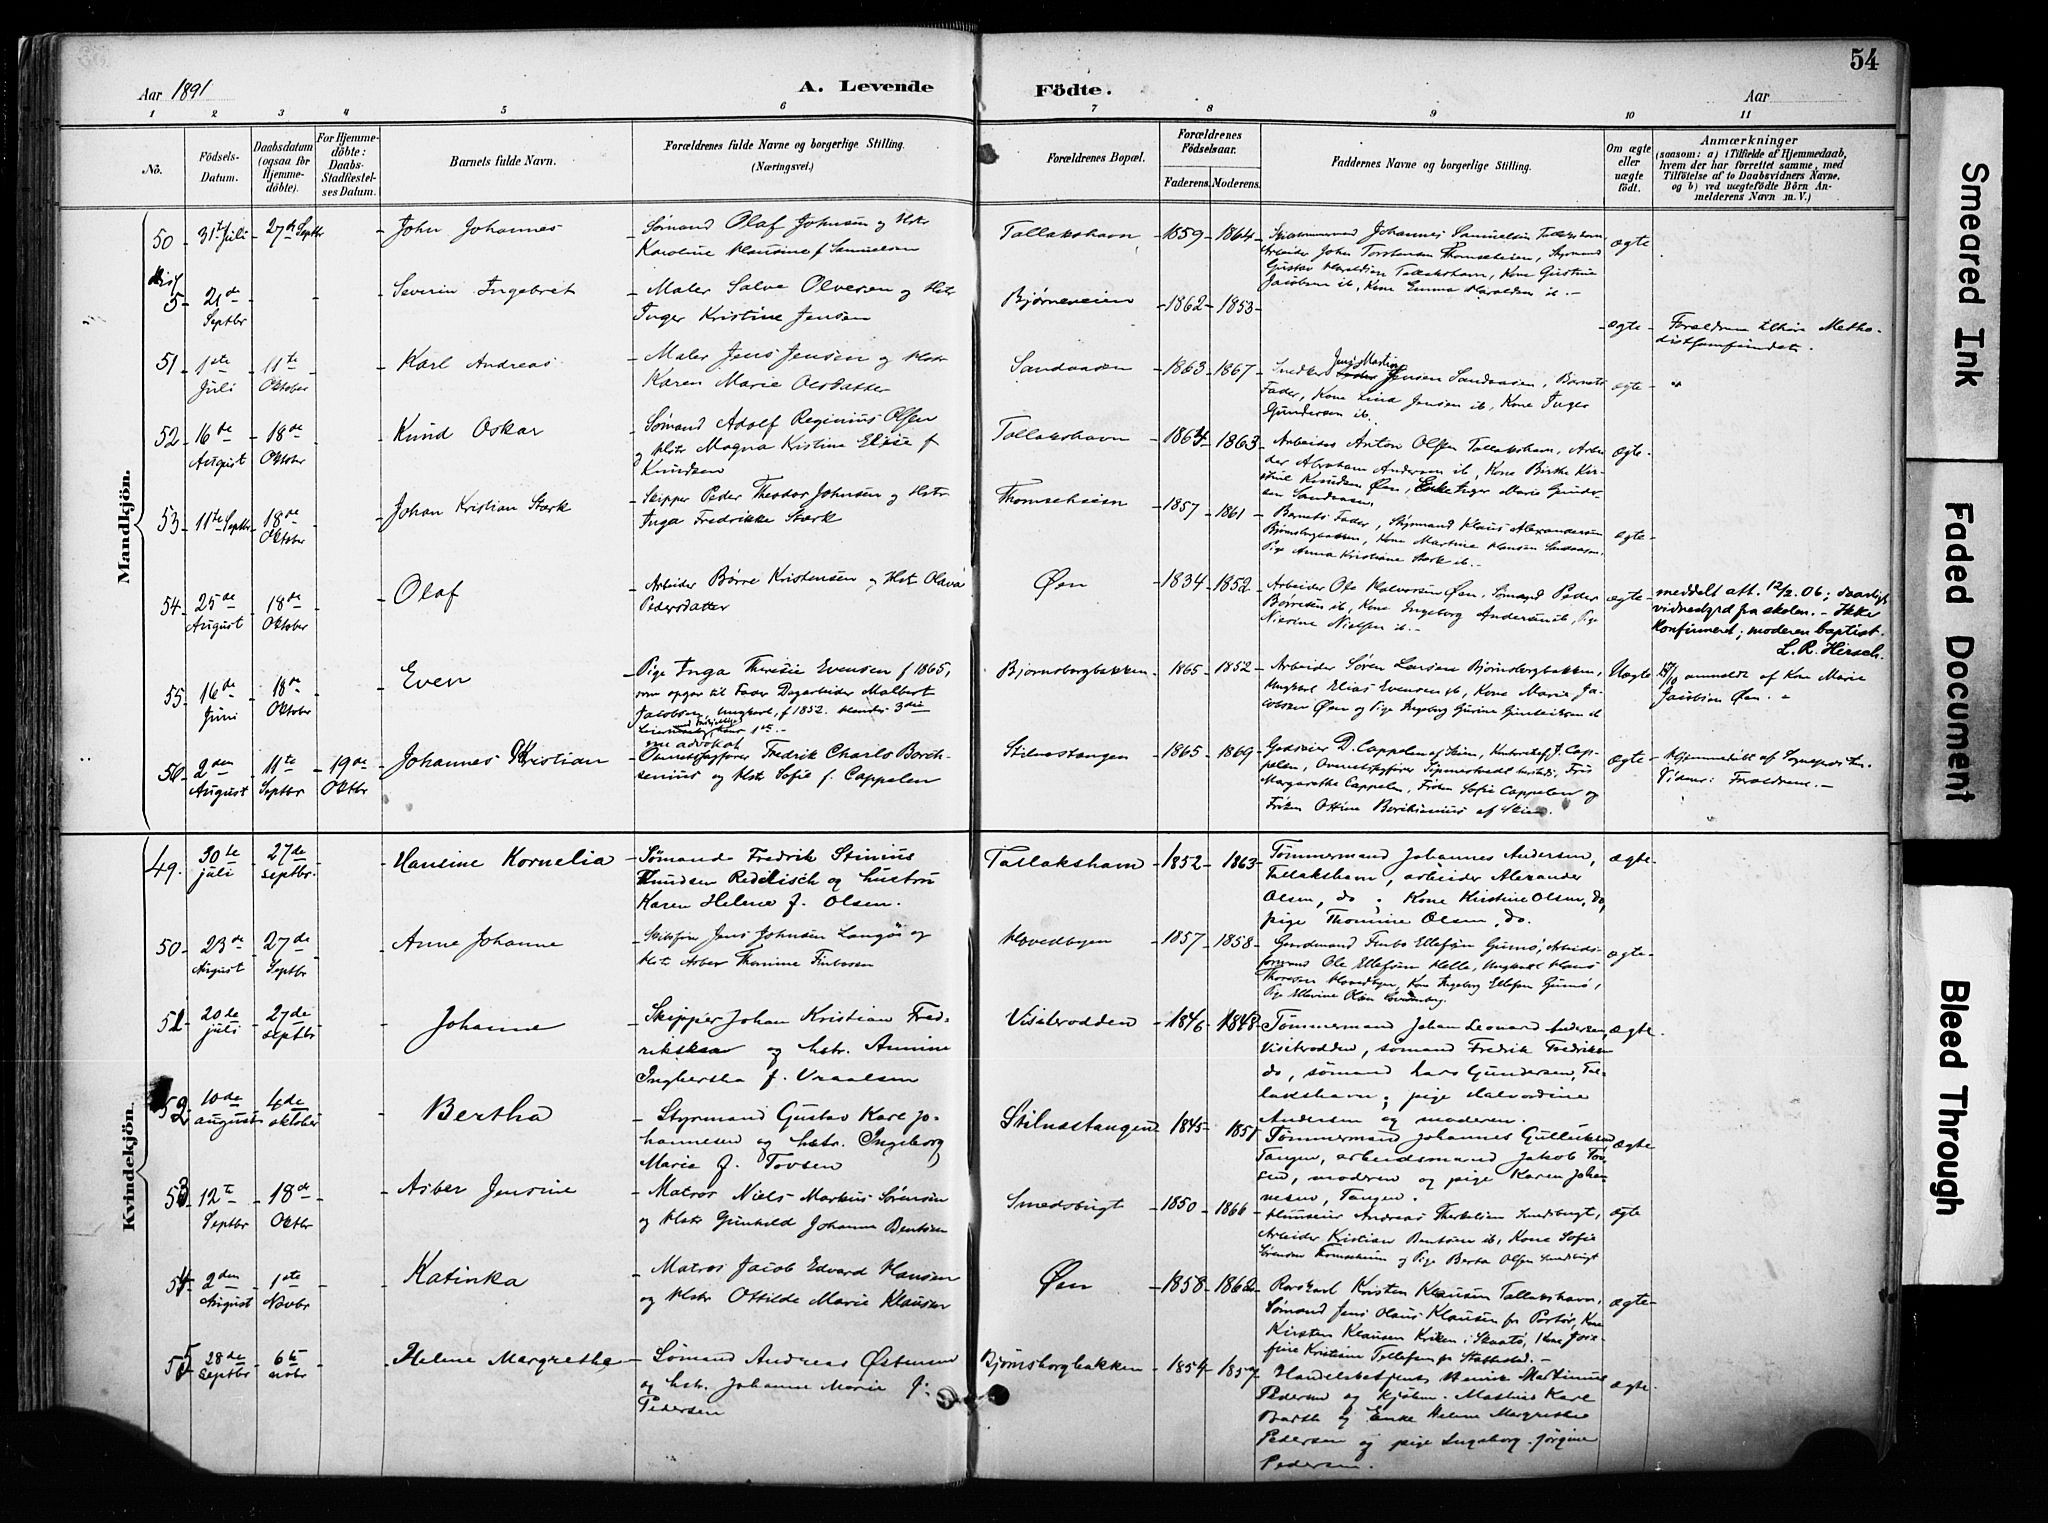 54
Aar 1891
A. Levende Födte.
Aar
1 2 3 4 5 6 7 8 9 10 11
No.
Födsels-Datum.
Daabsdatum (ogsaa for Hjemme-döbte).
For Hjemme-döbte: Daabs-Stadfæstel-ses Datum.
Barnets fulde Navn.
Forældrenes fulde Navne og borgerlige Stilling. (Næringsvei.)
Forældrenes Bopæl.
Forældrenes Födselsaar.
Faderens. Moderens.
Faddernes Navne og borgerlige Stilling.
Om ægte eller uægte födt.
Anmærkninger
(saasom: a) i Tilfælde af Hjemmedaab, hvem der har forrettet samme, med Tilföielse af to Daabsvidners Navne, og b) ved uægtefödte Börn An-melderens Navn m. V.)
Mandkjön.
50 31te Juli 27de Septbr John Johannes
Sømand Olaf Johnsen og Hstr
Karoline Klausine f Samuelsen
Tallakshavn 1859 1864
Johannes Samuelsen Tallakshavn
Arbeider John Torstensen Thomseheien, Styrmand
Gustav Haraldsen Tallakshavn, Kone Gustine
Jacobsen ib, Kone Emma Haraldsen ib.
ægte
5 21de Septbr Severin Ingebret
Maler Salve Olversen og Hstr
Inger Kristine Jensen
Bjørneveien 1862 1853
ægte
Forældrene tilhør Metho-
distsamfundet.
51 1ste Juli 11te Oktober Karl Andreas
Maler Jens Jensen og Hstr
Karen Marie Olsdatter
Sandaasen 1863 1867
Snedker Jens Martin Jensen Sandaasen, Barnets
Fader, Kone Lina Jensen ib, Kone Inger
Gundersen ib.
ægte
52 16de August 18de Oktober Knud Oskar
Sømand Adolf Reginius Olsen
og Hstr Magna Kristine Elise f
Knudsen
Tallakshavn 1864 1863
Arbeider Anton Olsen Tallakshavn, Arbei-
der Abraham Andersen ib, Kone Birthe Kir-
stine Knudsen Øen, Enke Inger Marie Gunder-
sen Sandaasen.
ægte
53 11te Septbr 18de Oktober Johan Kristian Stærk
Skipper Peder Theodor Johnsen og Hstr
Inga Fredrikke Stærk
Thomseheien 1857 1861
Barnets Fader, Styrmand Klaus Alexandersen
Bjørnsborgbakken, Kone Martine Hansen Sandaasen,
Pige Anna Kristiane Stærk ib.
ægte
54 25de August 18de Oktober Olaf
Arbeider Børre Kristensen og Hst Olava
Pedersdatter
Øen 1834 1852
Arbeider Ole Halvorsen Øen, Sømand Peder
Børresen ib, Kone Ingeborg Andersen ib, Pige
Nicoline Nielsen ib.
ægte
meddelt att. 12/2. 06; daarligt
vidnesbyrd fra skolen. - Ikke
konfirmeret; moderen baptist.
L. R. Hirsch.
55 16de Juni 18de Oktober Even
Pige Inga Theresie Evensen f 1865,
som opgav til Fader Dagarbeider Malbert
Jacobsen, Ungkarl, f 1852. Hendes 3die
Bjørnsborgbakken 1865 1852
Arbeider Søren Larsen Bjørnsborgbakken,
Ungkarl Elias Evensen ib, Kone Marie Ja-
cobsen Øen og Pige Ingeborg Gurine Gundersen ib
Uægte
anmeldt af Kone Marie
Jacobsen Øen.
56 2den August 11te Septbr 19de Oktbr Johannes Kristian
Ovrretssagfører Fredrik Charls Borch-
senius og Hst Sofie f. Cappelen
Stilnestangen 1865 1869
Godseier D. Cappelen af Skien, J. Cap-
pelen, Overretssagfører
Margarethe Cappelen, Frøken Sofie Cappelen og
Frøken Ottine Borchsenius af Skien.
ægte
Hjemmedøbt af Sognepresten.
Vidner: Forældrene.
Kvindekjön.
49. 30te juli 27de septbr. Hansine Kornelia
Sømand Fredrik Stinius
Knudsen Reddisch og hustru
Karen Helene f. Olsen.
Tallakshavn 1852 1863
Tømmermand Johannes Andersen,
Tallakshavn, arbeider Alexander
Olsen, do, Kone Kirstine Olsen, do,
pige Thomine Olsen, do.
ægte
50 23de August 27de Septbr Anne Johanne
Skibsfør Jens Johnsen Langøi og
Hst Asber Thomine Finbosen
Hovedbyen 1857 1858
Gaardmand Finbo Ellefsen Gumø, Arbeids-
formand Ole Ellefsen Helle, Ungkarl Hans
Thoresen Hovedbyen, Kone Ingeborg Ellefsen Gumø,
Pige Ellevine Olsen
ægte
51 20de juli 27de septbr Johanne
Skipper Johan Kristian Fred-
riksksen og hstr. Annine
Ingbertha f. Vraalsen
Visiterodden 1846 1848
Tømmermand Johan Leonard Andersen,
Visiterodden, sømand Fredrik Fredriksen
do, sømand Lars Gundersen, Tal-
lakshavn; pige Halvordine
Andersen og moderen.
ægte.
52 10de august 4de oktober Bertha
Styrmand Gustav Karl Jo-
hannesen og hstr. Ingeborg
Marie f. Tovsen
Stilnestangen 1845 1851
Tømmermand Johannes Gulliksen
Tangen, arbeidsmand Jakob Tov-
sen, moderen og pige Karen Johan-
nesen, Tangen.
ægte
53 12te Septbr 18de Oktbr Asber Jensine
Matros Niels Markus Sørensen
og Hstr Gunhild Johanne Bentsen
Smedsbugt 1850 1866
Huuseier Andreas Therkelsen Smedsbugt,
Arbeider Kristian Bentsen ib, Kone Sofie
Sørensen Thomseheien og Pige Berta Olsen Smedsbugt
ægte
54 2den August 1ste Novbr Katinka
Matros Jacob Edvard Hansen
og Hstr Ottilde Marie Klausen
Øen 1858 1862
Kristen Klausen Tallakshavn,
Sømand Jens Olaus Klausen fra Portør, Kone
Kirsten Klausen Kriken i Skaatø, Kone Jose-
fine Kristine Tellefsen fra Stabbestad.
ægte
55 28de septbr 6te novbr Helene Margrethe
Sømand Andreas Østensen
og hstr. Johanne Marie f.
Pedersen
Bjørnsborgbakken 1854 1857
Handelsbetjent Henrik Martinius
Pedersen og kjøbm. Mathias Karl
Barth og Enke Helene Margrethe
Pedersen og pige Ingeborg Jørgine
Pedersen.
ægte
Smeared Ink
Faded Document
Bleed Through